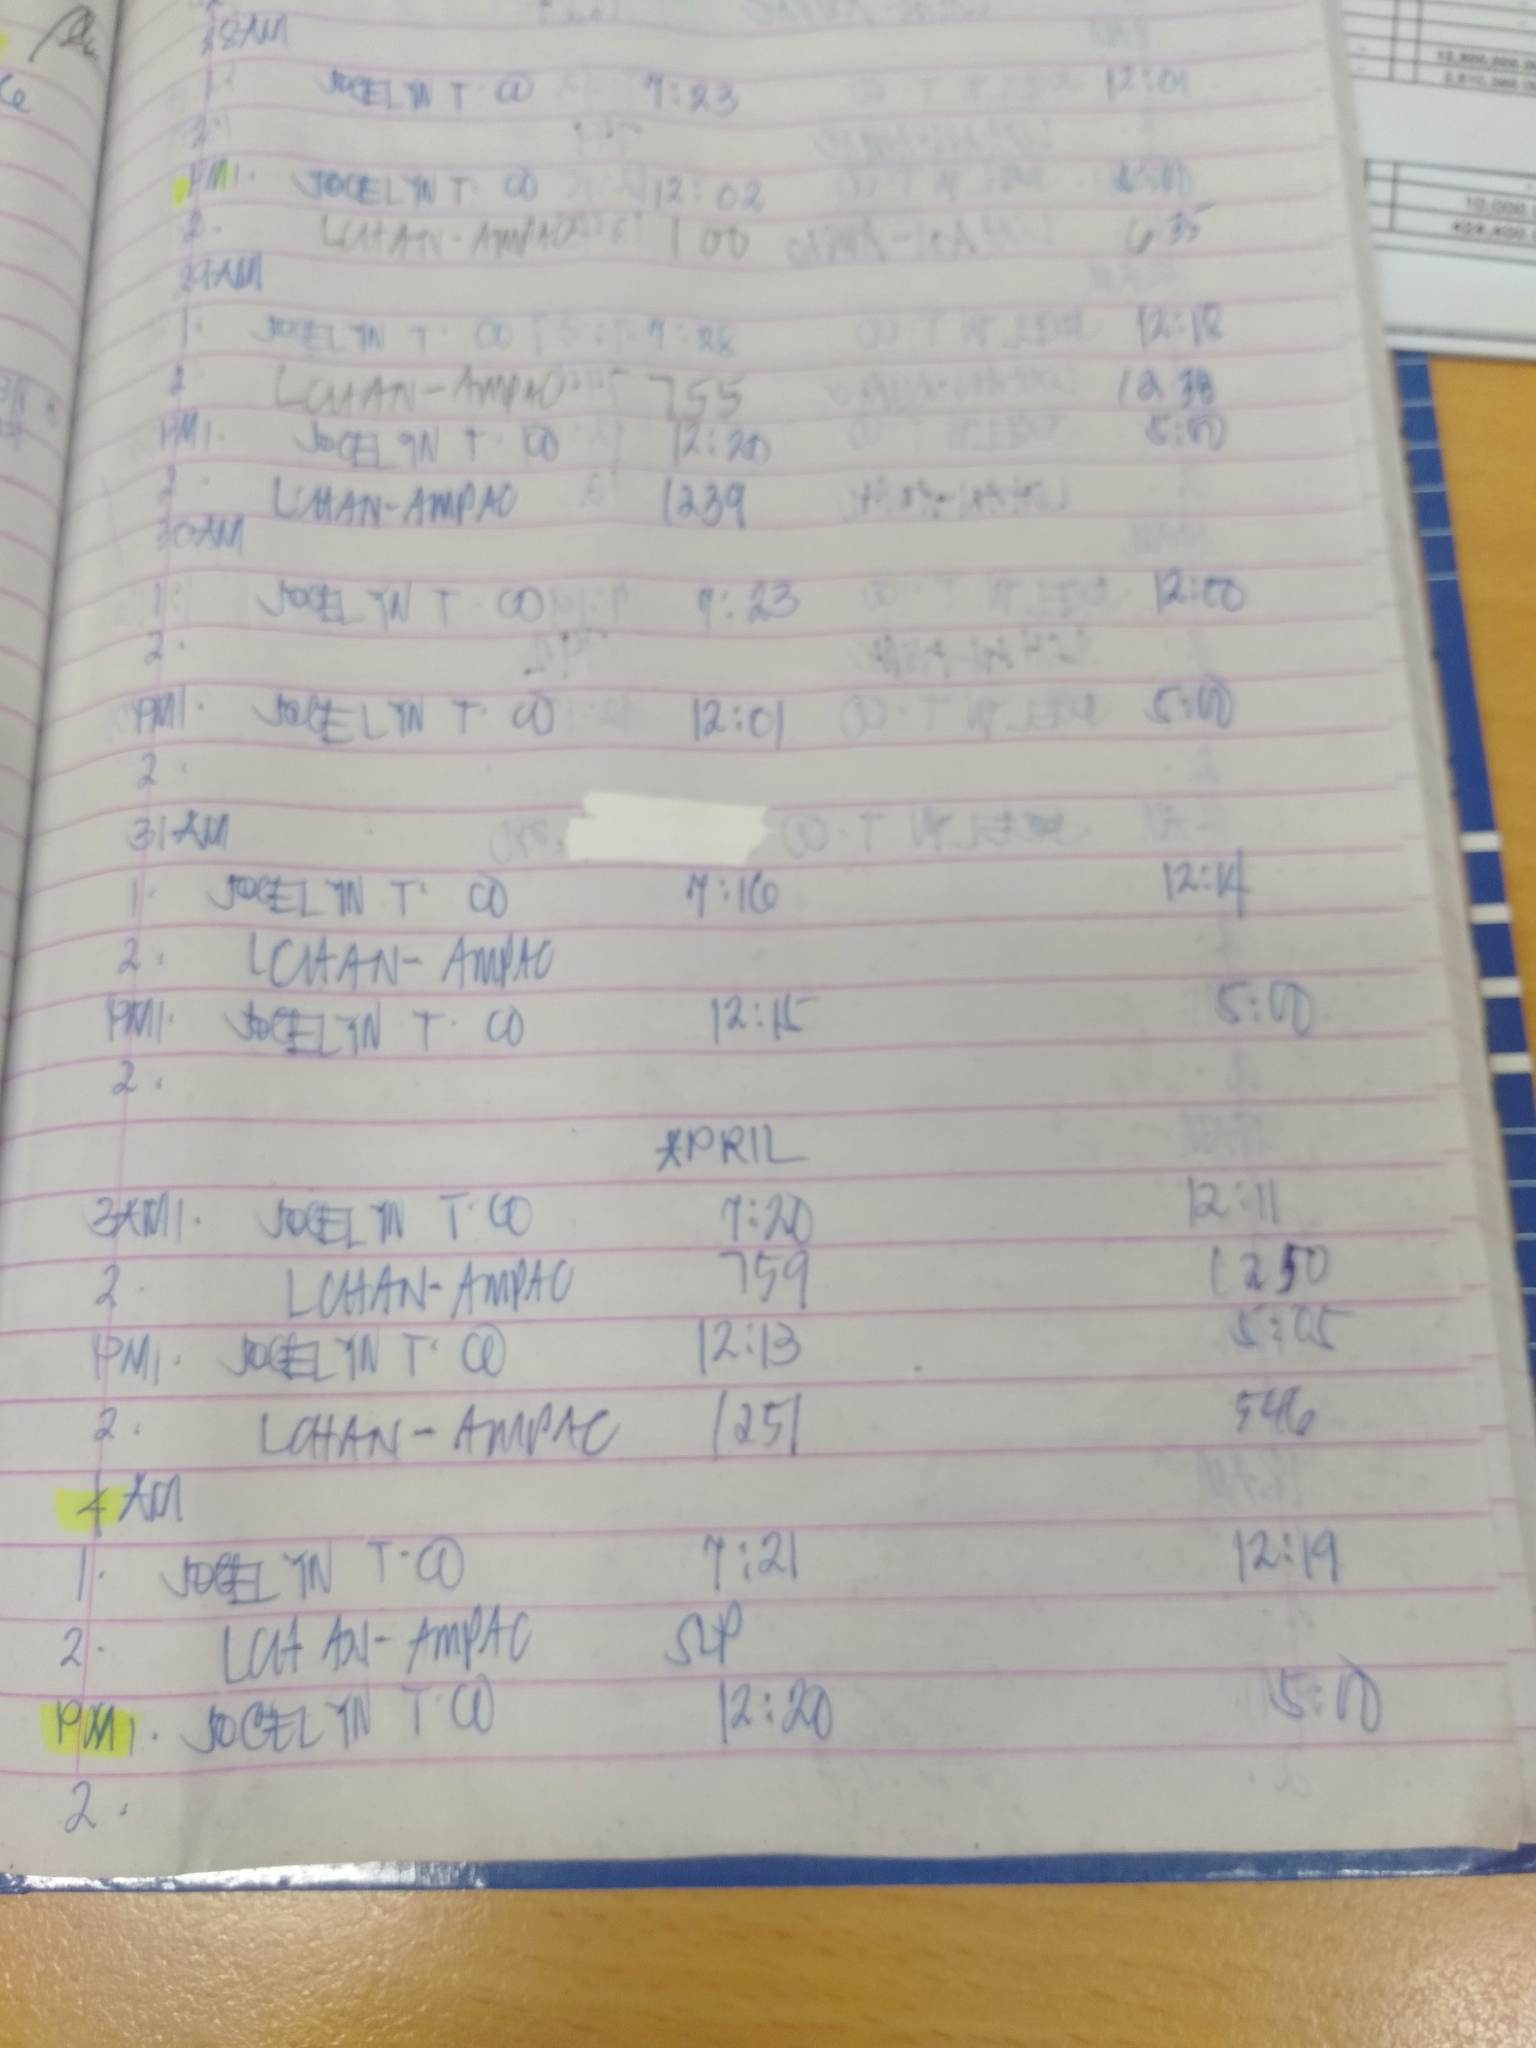 28AM
1. JOCELYN T. CO 7:23 12:01
2.
PM1. JOCELYN T. CO 12:02
2. LCHAN-AMPAC 100 635
29AM
1. JOCELYN T. CO 7:28 12:18
2. LCHAN-AMPAC 755 1238
PM1. JOCELYN T. CO 12:20 5:00
2. LCHAN-AMPAC 1239
30AM
1. JOCELYN T. CO 7:23 12:00
2.
PM1. JOCELYN T. CO 12:01 5:00
2.
31AM
1. JOCELYN T. CO 7:16 12:14
2. LCHAN-AMPAC
PM1. JOCELYN T. CO 12:15 5:00
2.
APRIL
3AM1. JOCELYN T. CO 7:20 12:11
2. LCHAN-AMPAC 759 1250
PM1. JOCELYN T. CO 12:13 5:05
2. LCHAN-AMPAC 1251 546
4 AM
1. JOCELYN T. CO 7:21 12:19
2. LCHAN-AMPAC SLP
PM1. JOCELYN T. CO 12:20 5:00
2.